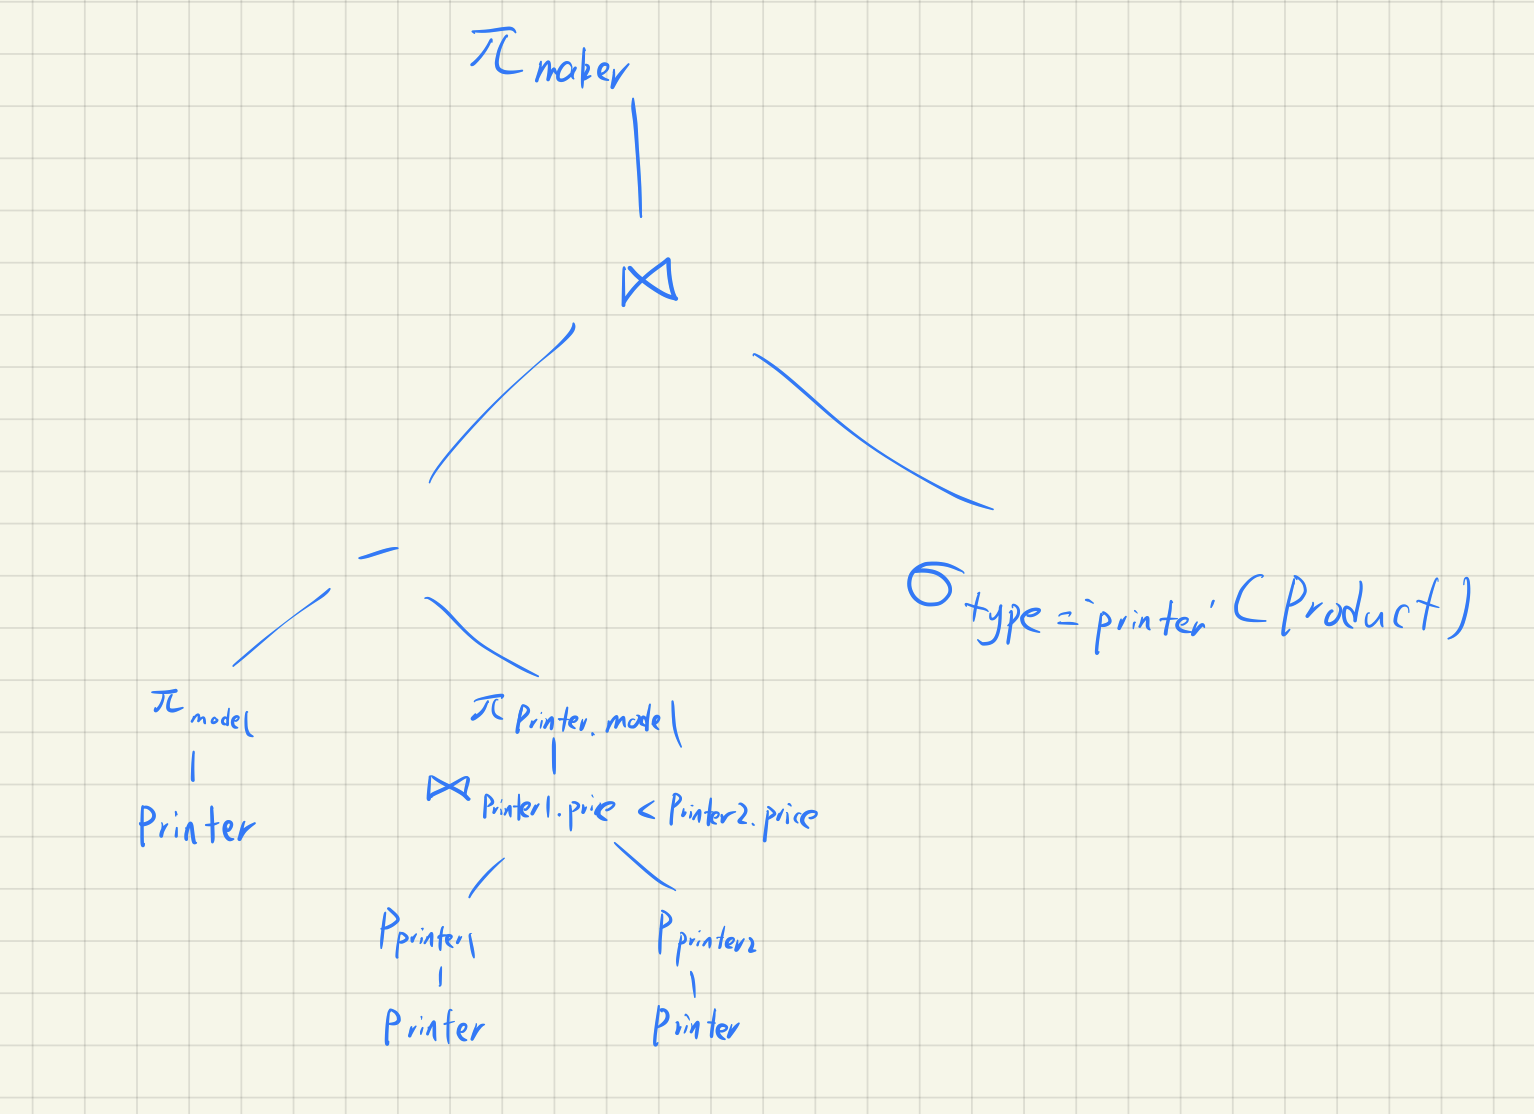 π maker
⋈
−
σ type = 'printer' (Product)
π model
π Printer.model
Printer
⋈ Printer1.price < Printer2.price
ρ printer1
ρ printer2
Printer
Printer